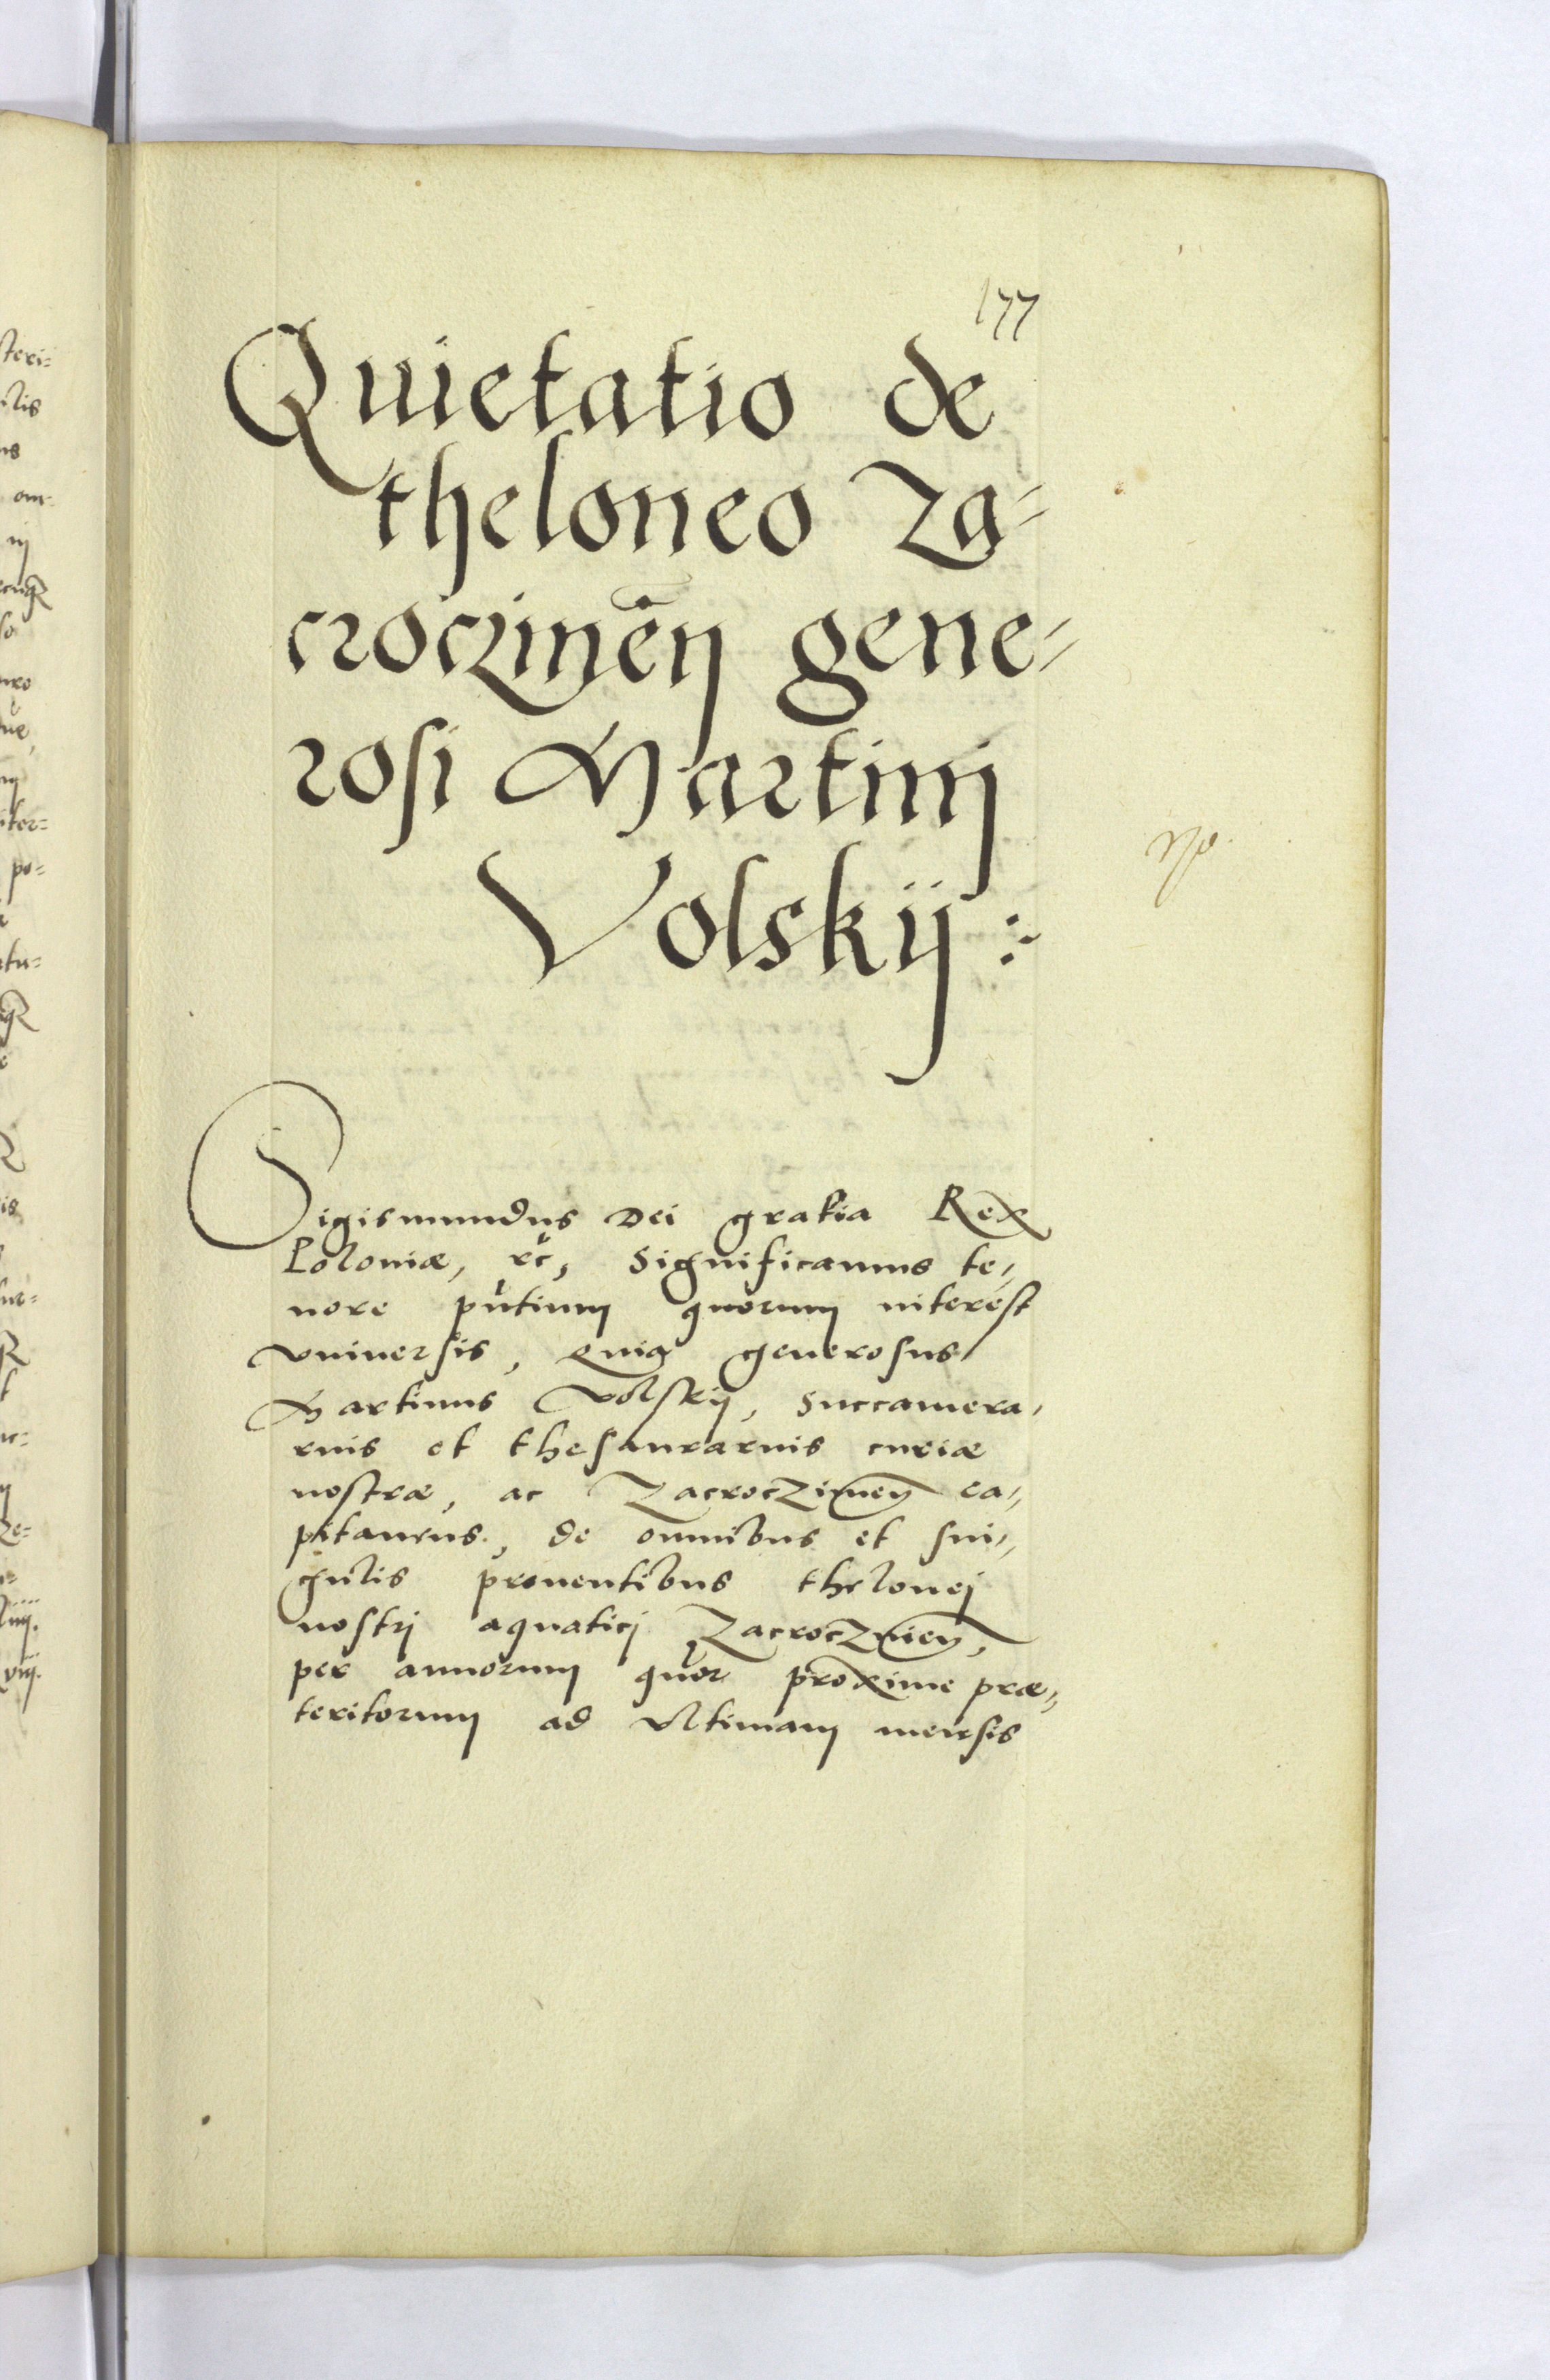 177
Quietatio de
theloneo Za=
crocziměn gene=
rosi Martini
Volskij :
Sigismundus Dei gratia Rex
Poloniæ, etc, Significamus te,
nore pñtium quorum interest
vniuersis, Quia generosus
Martinus Volskij, Succamera,
rius et thesaurarius curiæ
nostræ, ac Zacroczimeñ ca,
pitaneus, de omnibus et sin,
gulis prouentibus thelonej
nostrj aquaticj Zacroczimeñ,
per annorum quor proxime præ,
teritorum ad vltimam mensis